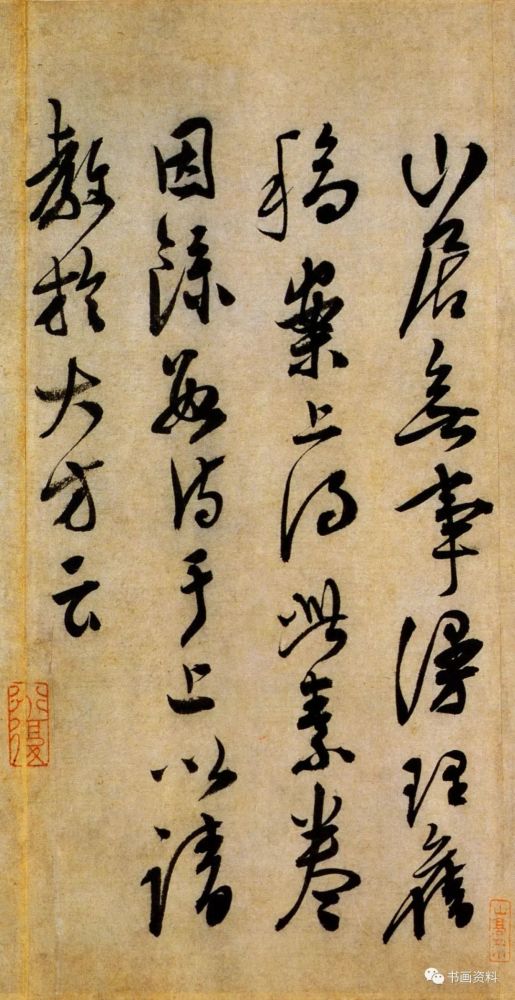 山居無事漫理舊
稿案上得此素卷
因錄數詩于上以請
教於大方云
书画资料